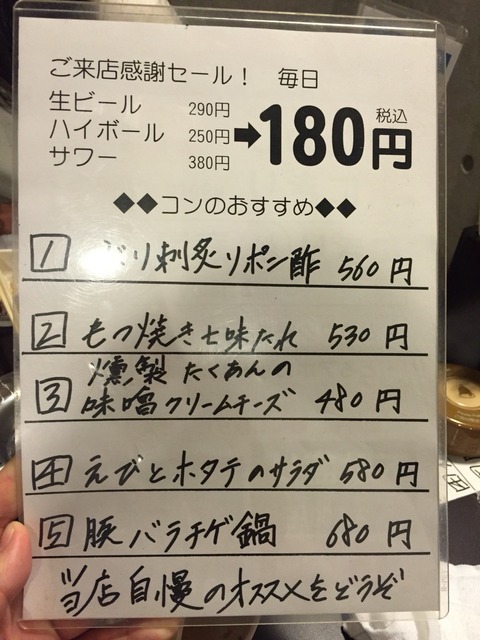 ご来店感謝セール！ 毎日
生ビール 290円
ハイボール 250円
サワー 380円
➡180円 税込
◆◆コンのおすすめ◆◆
1 ぶり刺炙リポン酢 560円
2 もつ焼き七味たれ 530円
3 燻製たくあんの
味噌クリームチーズ 480円
4 えびとホタテのサラダ 580円
5 豚バラチゲ鍋 680円
当店自慢のオススメをどうぞ